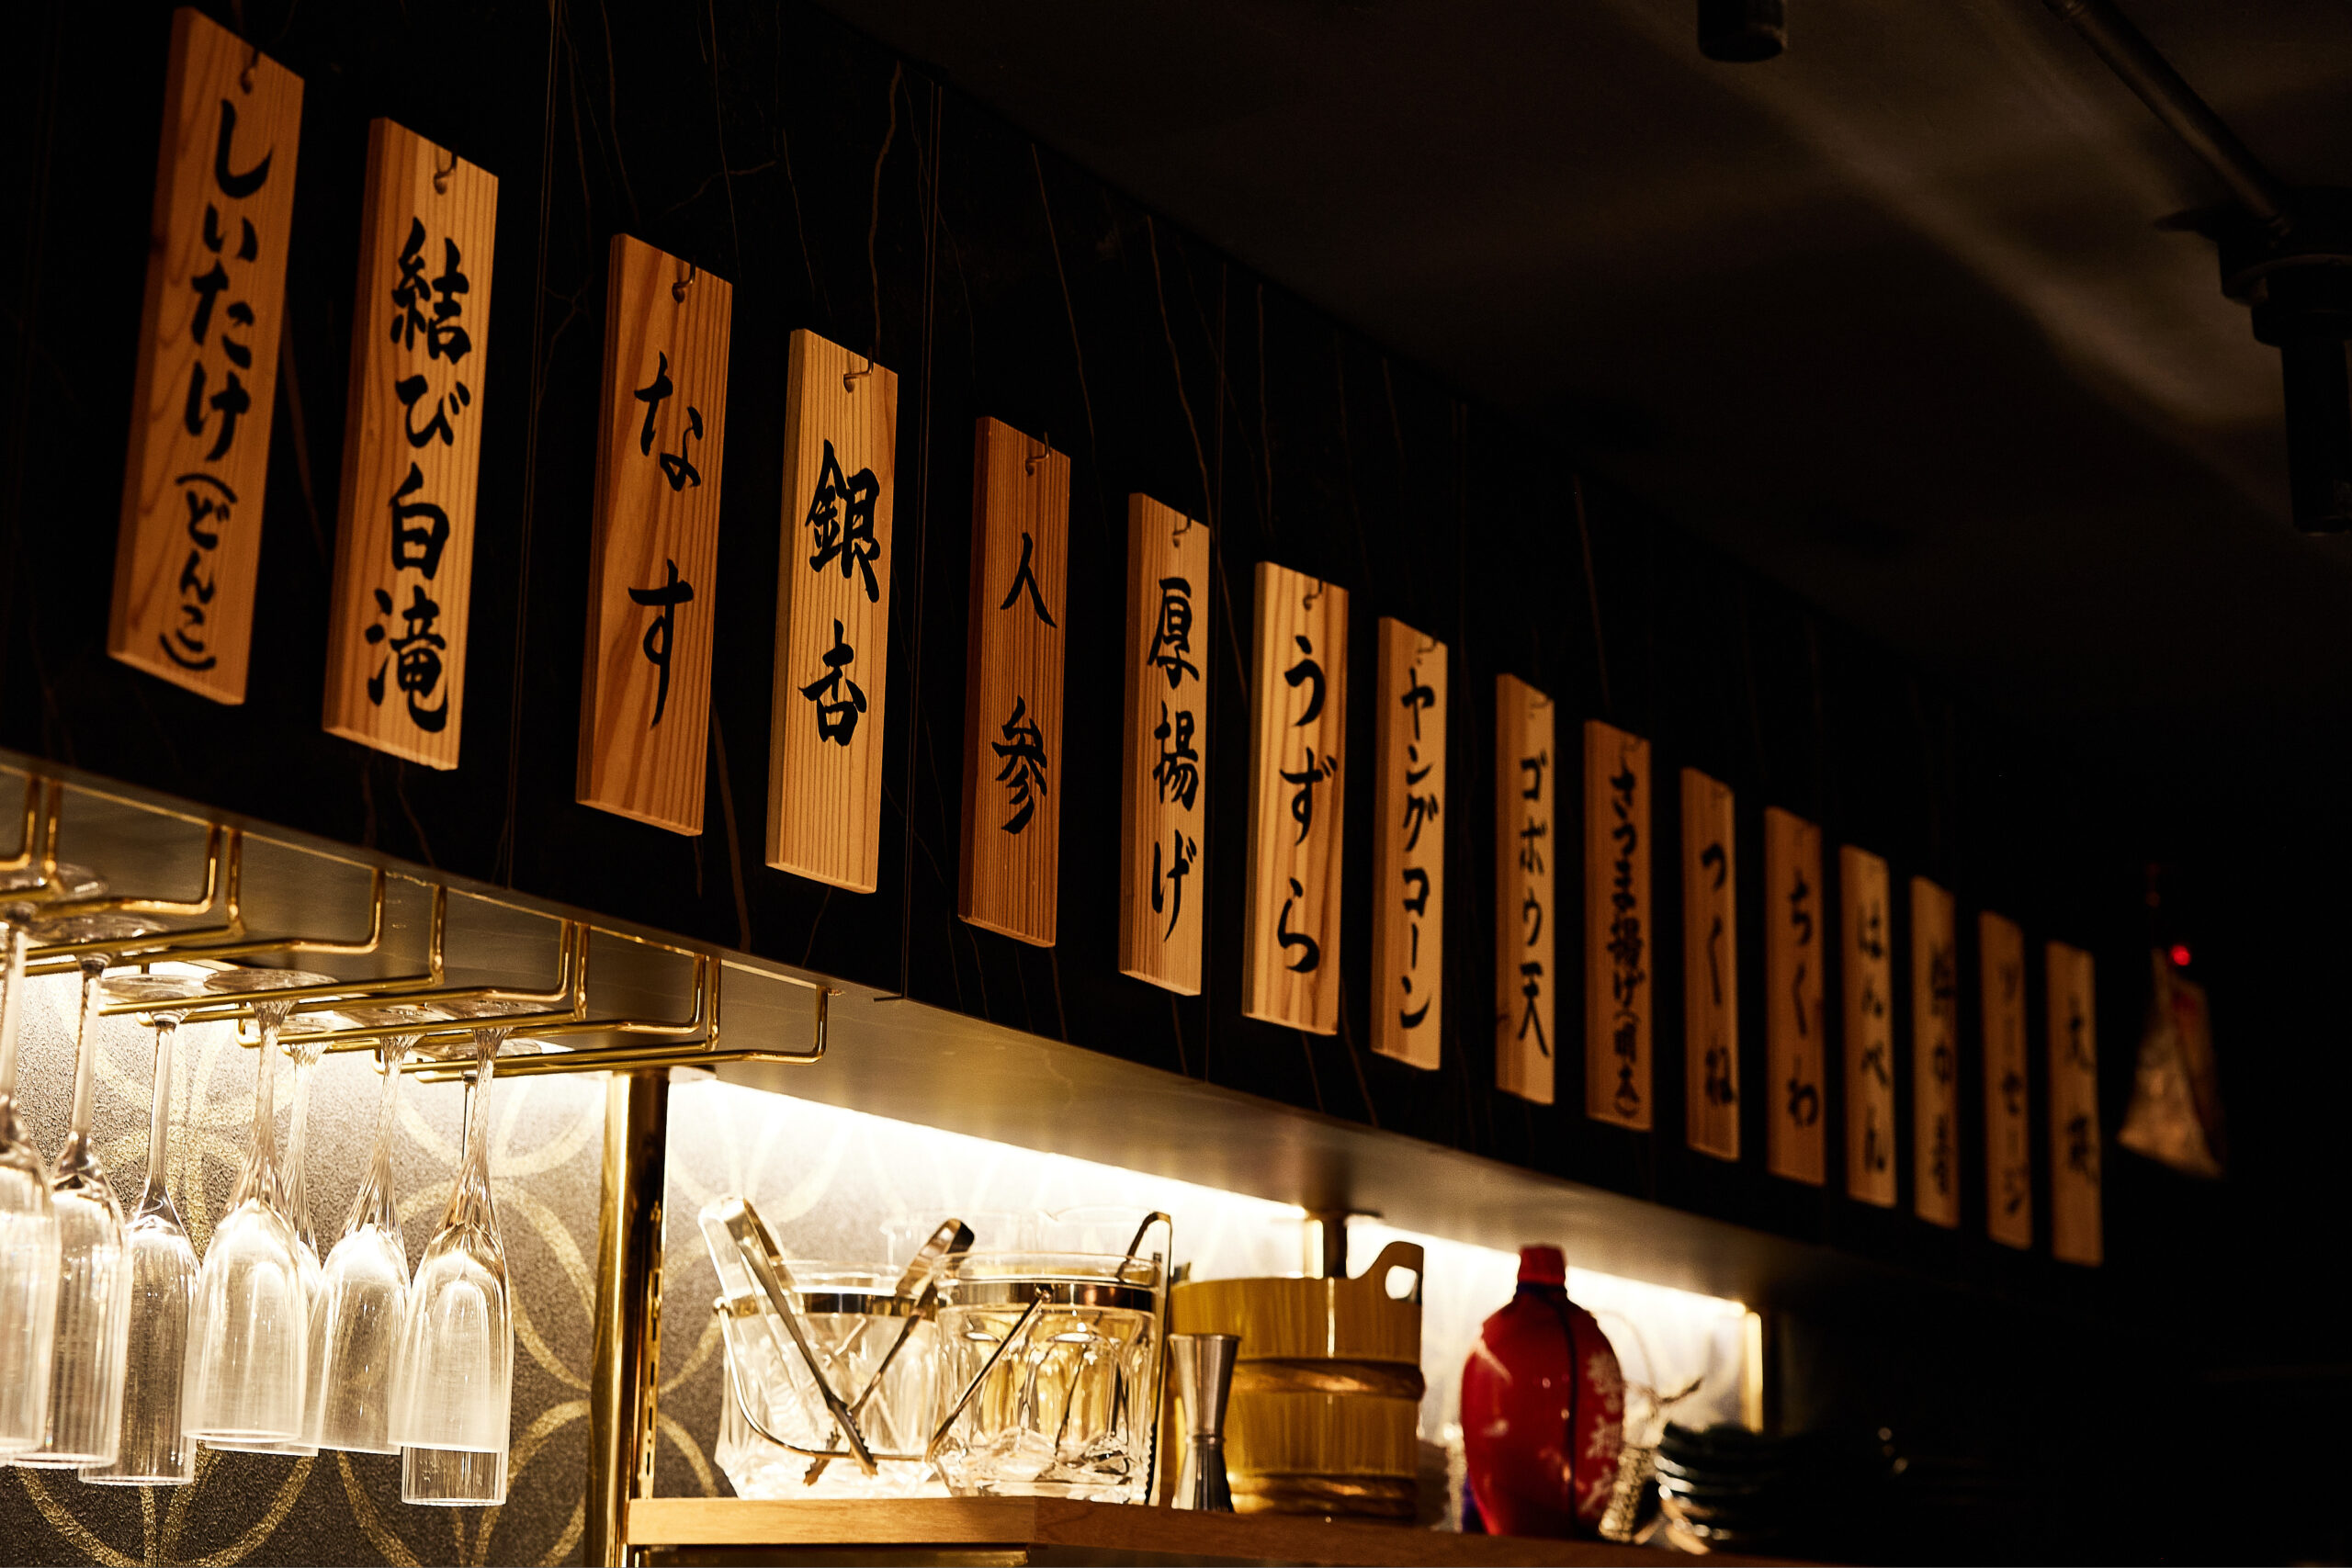 しいたけ(どんこ)
結び白滝
なす
銀杏
人参
厚揚げ
うずら
ヤングコーン
ゴボウ天
さつま揚げ(明太)
つくね
ちくわ
はんぺん
ソーセージ
大根